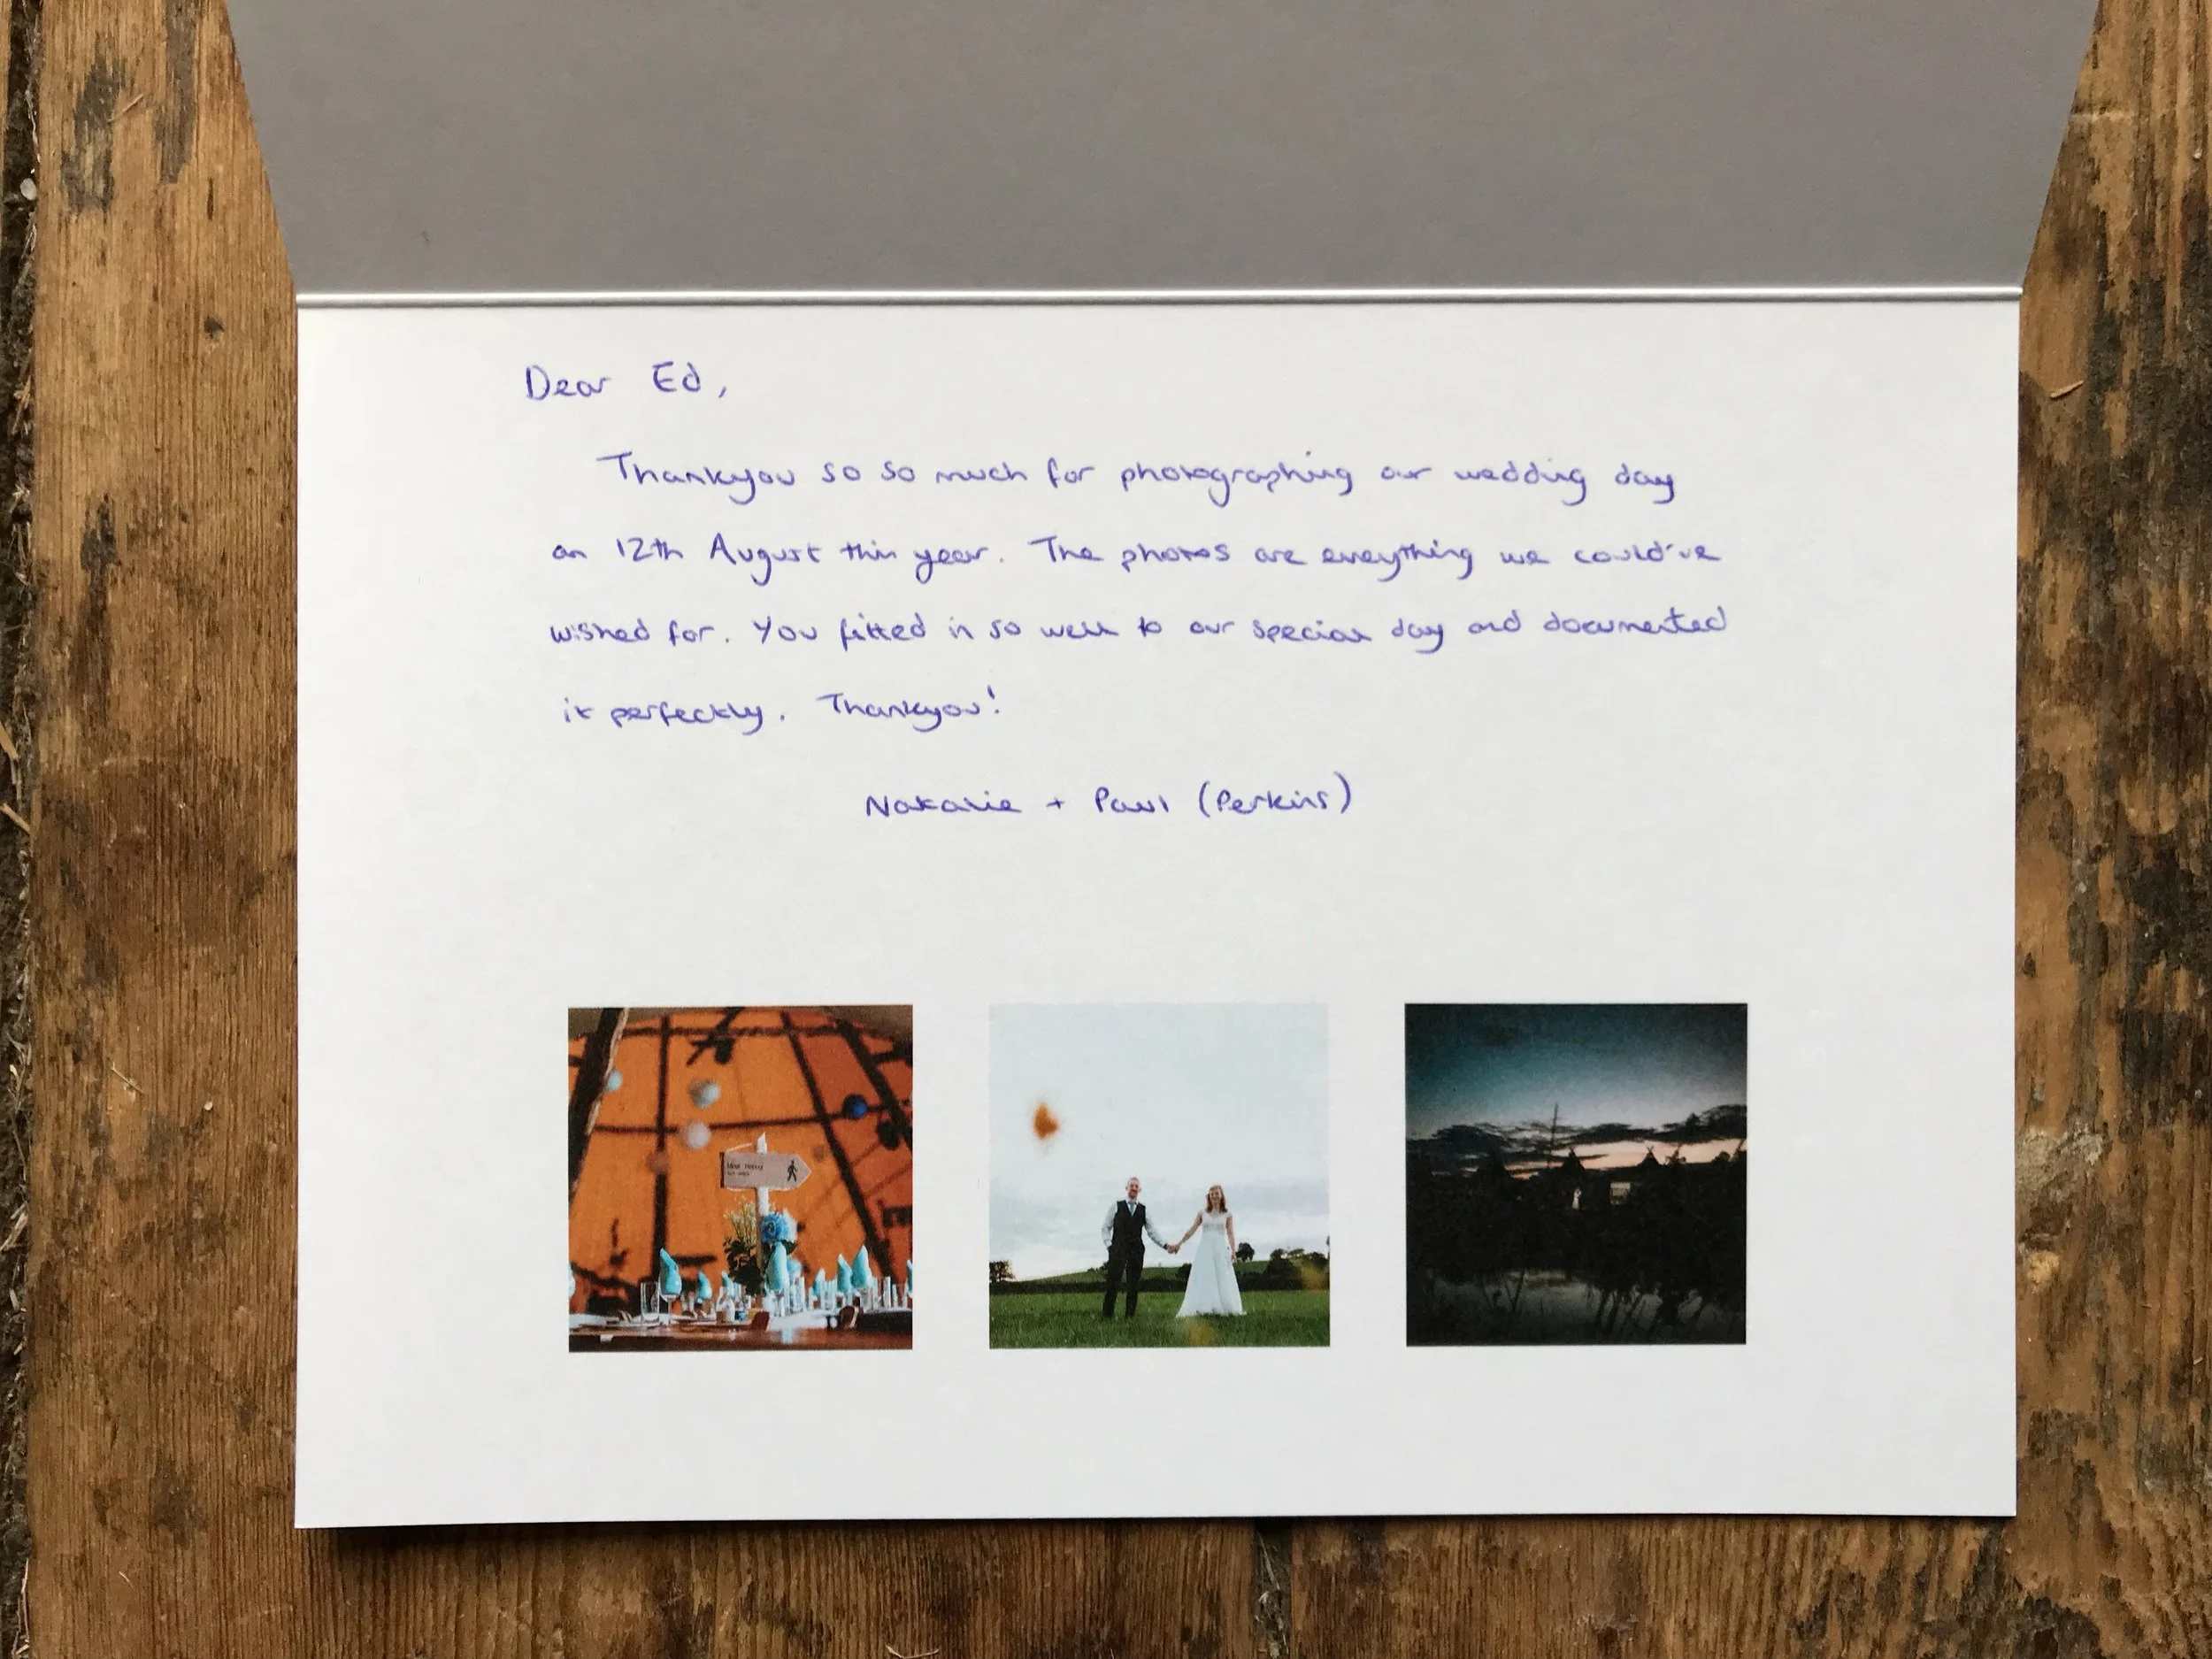 Dear Ed,
Thankyou so so much for photographing our wedding day
on 12th August this year. The photos are everything we could've
wished for. You fitted in so well to our special day and documented
it perfectly. Thankyou!
Natalie + Paul (Perkins)